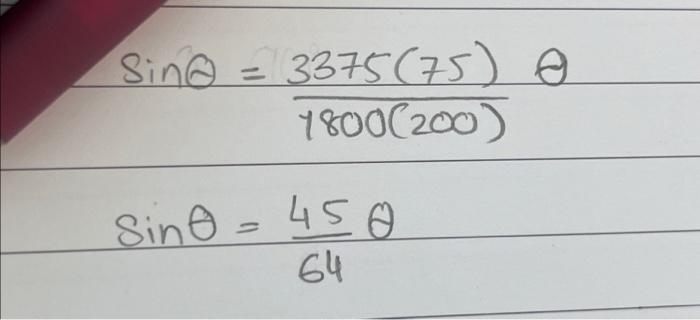 sinθ = 3375(75) / 1800(200) θ
sinθ = 45/64 θ